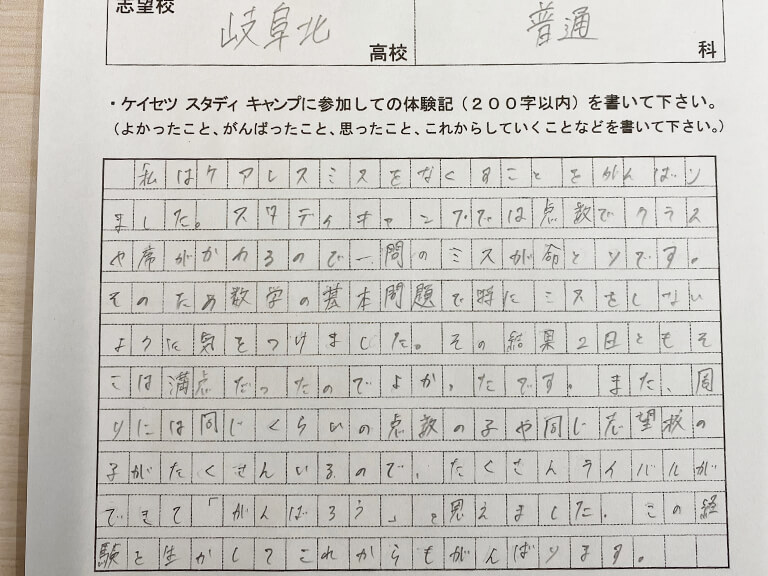 志望校
岐阜北
高校
普通
科
・ケイセツ スタディ キャンプに参加しての体験記（２００字以内）を書いて下さい。
（よかったこと、がんばったこと、思ったこと、これからしていくことなどを書いて下さい。）
私はケアレスミスをなくすことをがんばり
ました。スタディキャンプでは点数でクラス
や席がかわるので一問のミスが命とりです。
そのため数学の基本問題で特にミスをしない
ように気をつけました。その結果2回ともそ
こは満点だったのでよかったです。また、周
りには同じくらいの点数の子や同じ志望校の
子がたくさんいるので、たくさんライバルが
できて「がんばろう」と思えました。この経
験を生かしてこれからもがんばります。